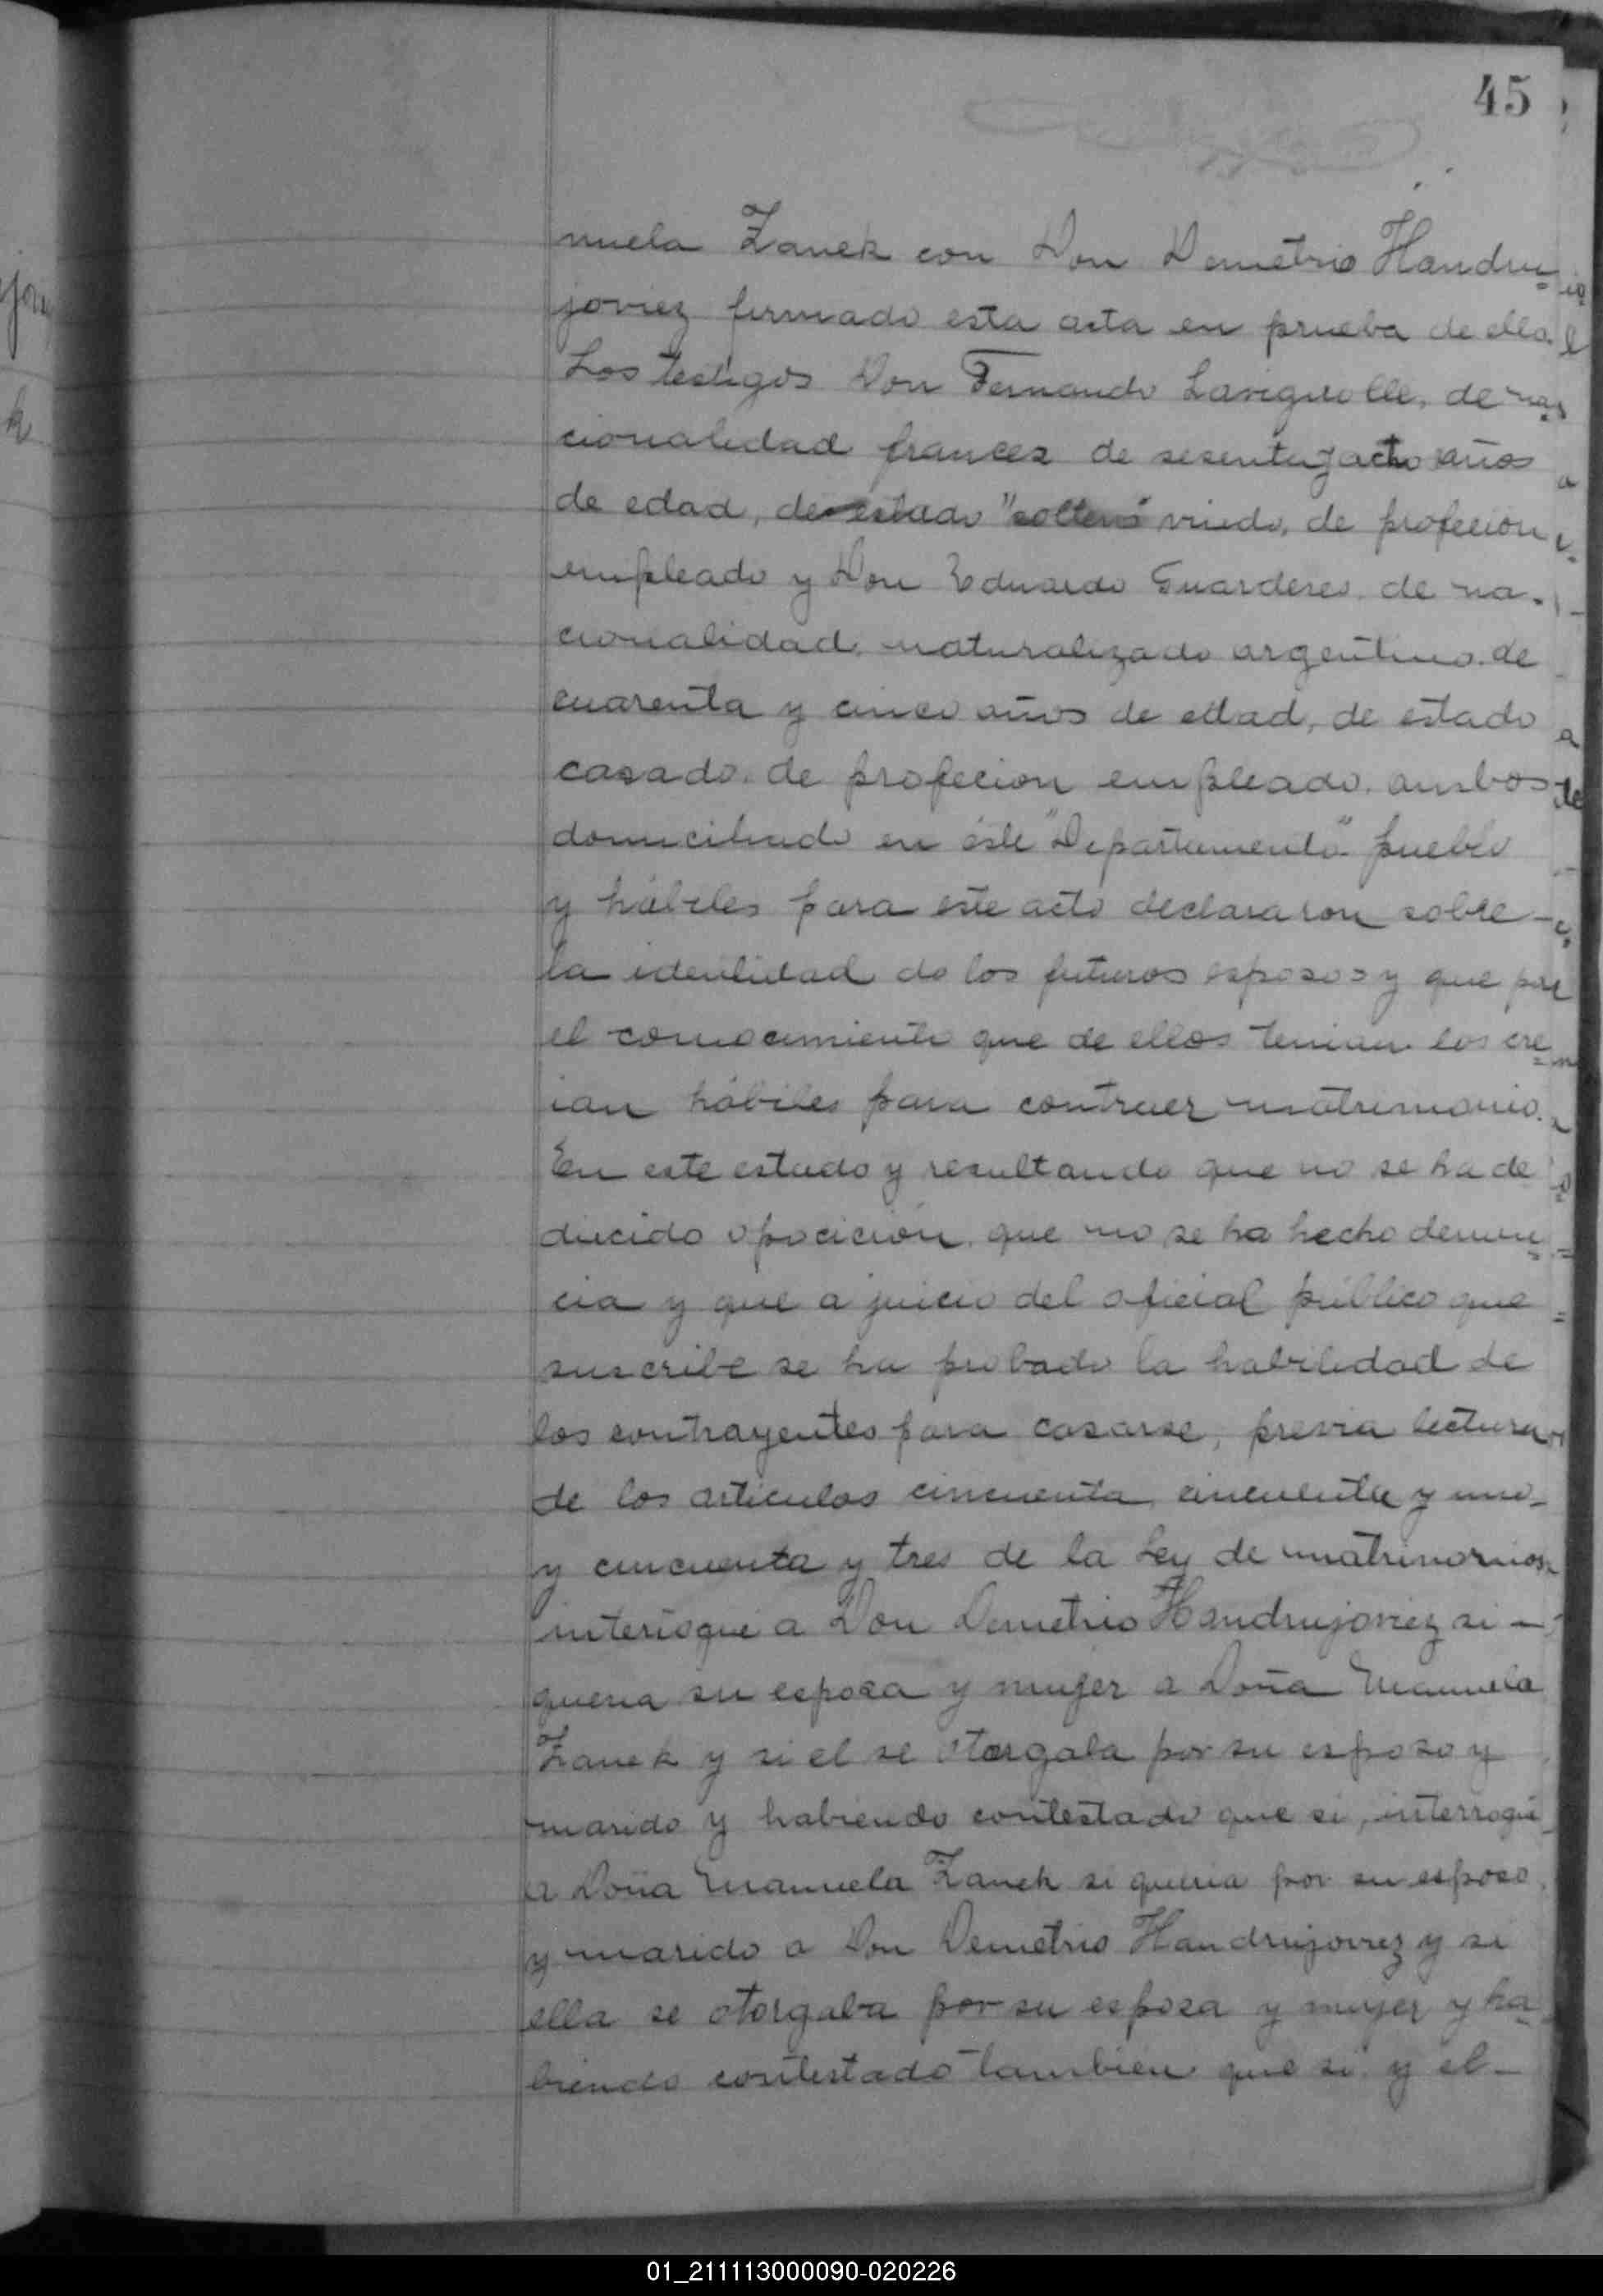 45
nuela Zanek con Don Demetrio Handru=
joviez firmado esta acta en prueba de ello.
Los testigos Don Fernando Lavignolle, de na=
cionalidad frances de sesentayocho años
de edad, de estado "soltero" viudo, de profecion
empleado y Don Eduardo Guarderes. de na-
cionalidad. naturalizado argentino. de
cuarenta y cinco años de edad, de estado
casado. de profecion empleado. ambos
domiciliado en éste "Departamento" pueblo
y hábiles para este acto declararon sobre-
la identidad de los futuros esposos y que por
el conocimiento que de ellos tenian los cre=
ian hábiles para contraer matrimonio.
En este estado y resultando que no se ha de
ducido oposición. que no se ha hecho denun=
cia y que a juicio del oficial público que
suscribe se ha probado la habilidad de
los contrayentes para casarse, previa lectura
de los articulos cincuenta, cincuenta y uno-
y cincuenta y tres de la Ley de matrimonios
interogué a Don Demetrio Handrujoviez si -
queria su esposa y mujer a Doña Manuela
Zanek y si el se otorgaba por su esposo y
marido y habiendo contestado que si, interrogué
a Doña Manuela Zanek si queria por su esposo
y marido a Don Demetrio Handrujoviez y si
ella se otorgaba por su esposa y mujer y ha=
biendo contestado tambien que si y el-
01_211113000090-020226